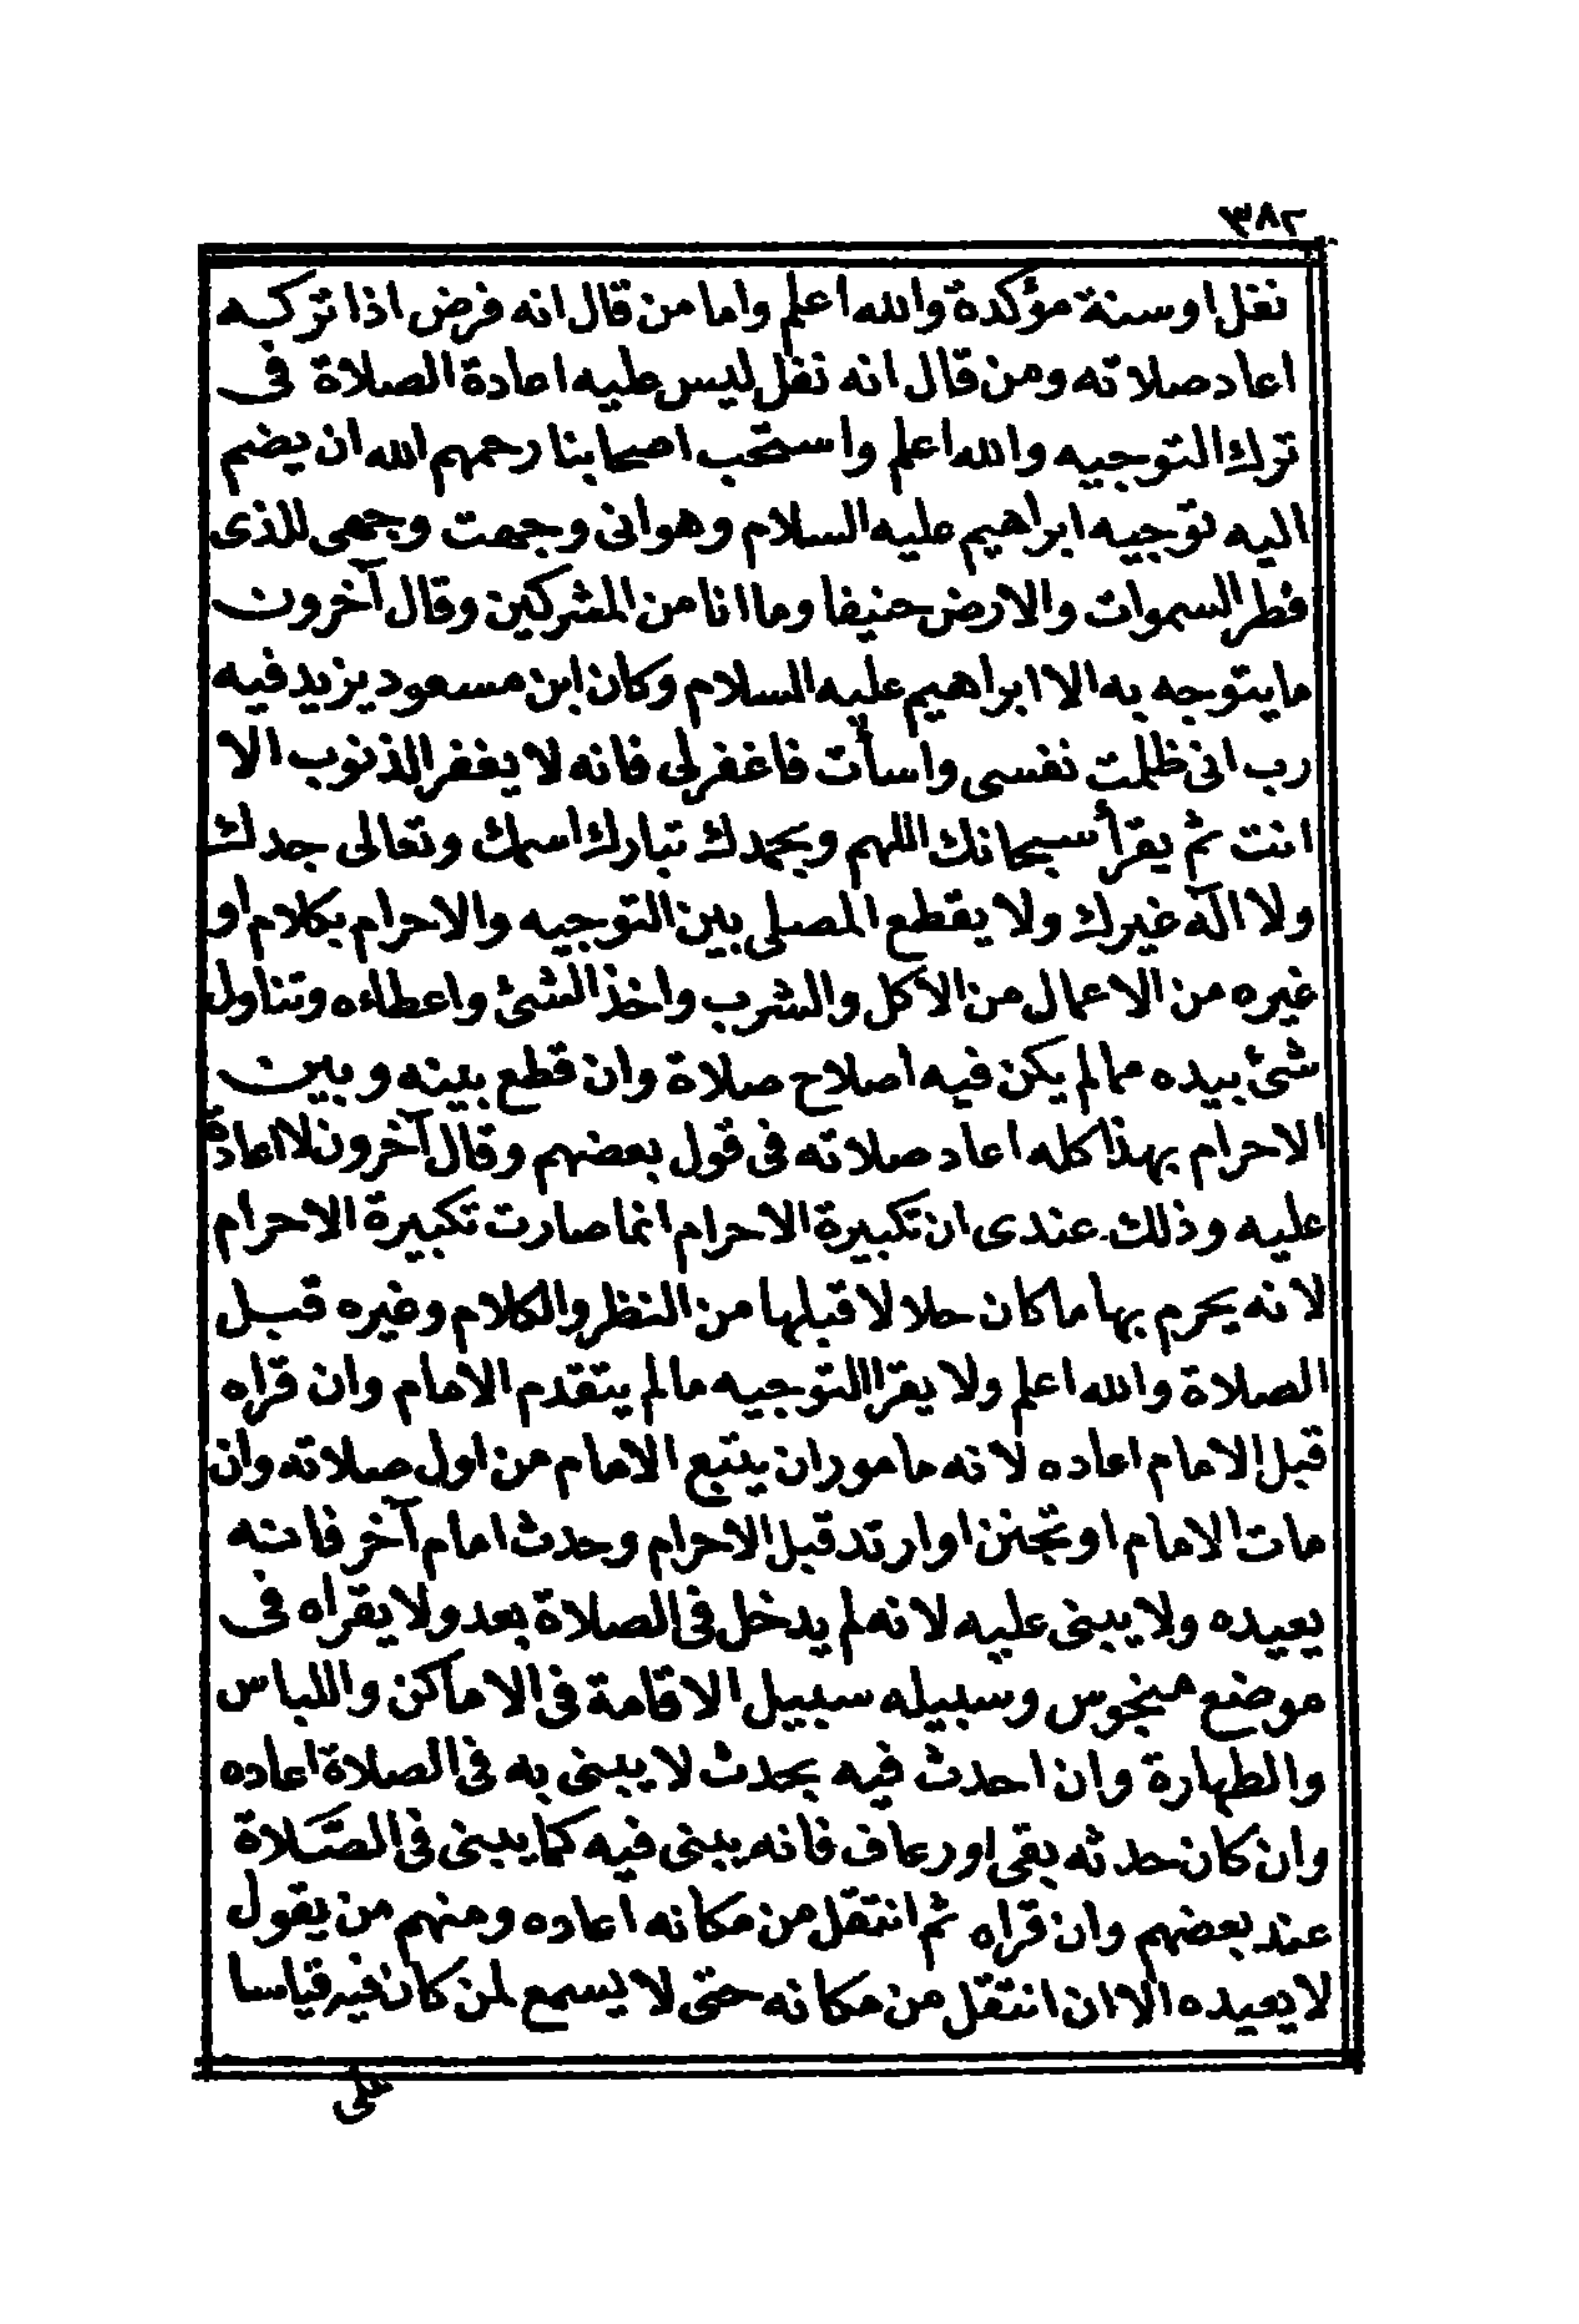 ٣٨٢
نفل او سنة مؤكدة والله اعلم واما من قال انه فرض اذا تركه
اعاد صلاته ومن قال انه نفل ليس عليه اعادة الصلاة فى
ترك التوجيه والله اعلم واستحب اصحابنا رحمهم الله ان يضم
اليه توجيه ابراهيم عليه السلام وهو انى وجهت وجهى للذى
فطر السموات والارض حنيفا وما انا من المشركين وقال آخرون
ما يتوجه به الا ابراهيم عليه السلام وكان ابن مسعود يزيد فيه
رب انى ظلمت نفسى واسأت فاغفر لى فانه لا يغفر الذنوب الا
انت ثم يقرأ سبحانك اللهم وبحمدك تبارك اسمك وتعالى جدك
ولا اله غيرك ولا يقطع المصلى بين التوجيه والاحرام بكلام او
غيره من الاعمال من الاكل والشرب واخذ الشئ واعطاءه وتناول
شئ بيده مما لم يكن فيه اصلاح صلاة وان قطع بينه وبين
الاحرام بهذا كله اعاد صلاته فى قول بعضهم وقال آخرون لا اعادة
عليه وذلك عندى ان تكبيرة الاحرام انما صارت تكبيرة الاحرام
لانه يحرم بها ما كان حلالا قبلها من النظر والكلام وغيره قبل
الصلاة والله اعلم ولا يقرا التوجيه ما لم يتقدم الامام وان قراه
قبل الامام اعاده لانه مامور ان يتبع الامام من اول صلاته وان
مات الامام او تجنن او ارتد قبل الاحرام وحدث امام آخر فانه
يعيده ولا يبنى عليه لانه لم يدخل فى الصلاة بعد ولا يقراه فى
موضع منجوس وسبيله سبيل الاقامة فى الاماكن واللباس
والطهارة وان احدث فيه بحدث لا يبنى به فى الصلاة اعاده
وان كان حدثه بقى او رعاف فانه يبنى فيه كما يبنى فى الصلاة
عند بعضهم وان قراه ثم انتقل من مكانه اعاده ومنهم من يقول
لا يعيده الا ان انتقل من مكانه حتى لا يسمع لمن كان غير قياسا
على